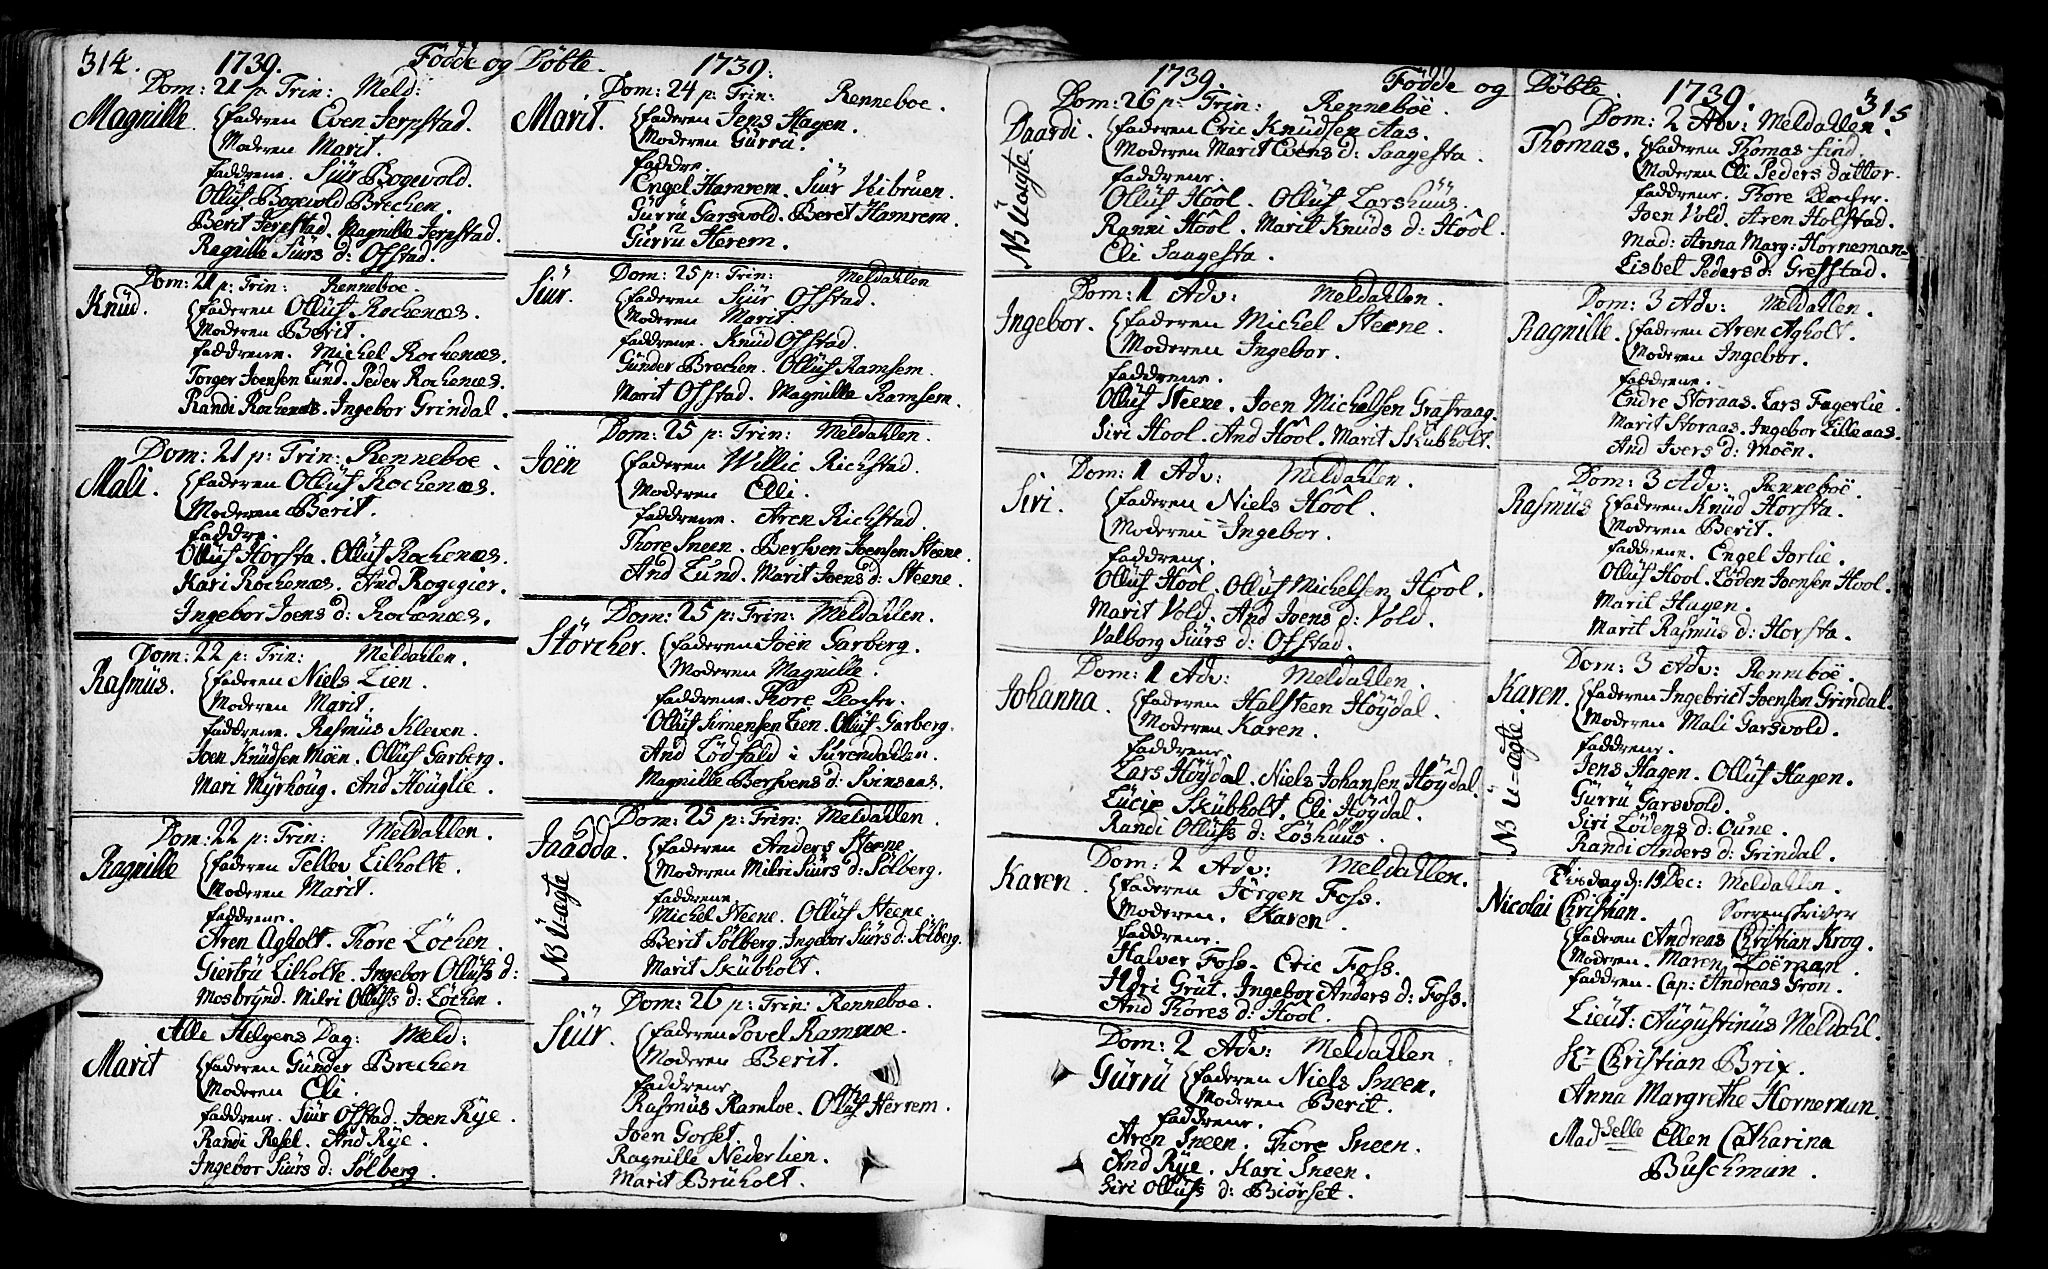 314. 1739. Födde og Döbte. 1739.
Dom: 21 p. Trin: Meld:
Magnille. faderen Even Jerpstad.
Moderen Marit.
faddrene. Siür Bogevold.
Ollüf Bogevold Brechen.
Berit Jerpstad. Magnille Jerpstad.
Ragnille Siürs d: Ofstad.
Dom: 21 p: Trin: Renneboe.
Knüd. faderen Ollüf Rochenæs.
Moderen Berit.
faddrene. Michel Rochenæs.
Torger Joensen Lünd. Peder Rochenæs.
Randi Rochenæs. Ingebor Grindal.
Dom: 21 p: Trin: Renneboe.
Mali. faderen Ollüf Rochenæs.
Moderen Berit.
faddre.
Ollüf Horsta. Ollüf Rochenæs.
Kari Rochenæs. And Rogigier.
Ingebor Joens d: Rochenæs.
Dom: 22 p: Trin: Meldahlen.
Rasmüs. faderen Niels Lien.
Moderen Marit.
faddrene. Rasmüs Kleven.
Joen Knüdsen Moen. Ollüf Garberg.
Mari Myrhoüg. And Hoüglie.
Dom: 22 p: Trin: Meldahlen.
Ragnille faderen Tellev Lilholte.
Moderen Marit.
faddrene.
Aren Agholt. Thore Löchen.
Giertrü Lilholte. Ingebor Ollüfs d:
Mosbrynd. Milri Ollüfs d: Löchen.
Alle Helgens Dag: Meld:
Marit faderen Günder Brechen
Moderen Eli.
faddrene. Siür Ofstad. Joen Rÿe.
Randi Resel. And Rÿe.
Ingebor Siürs d: Sölberg.
Dom: 24 p: Trin: Renneboe.
Marit. faderen Jens Hagen.
Moderen Gürrü.
faddre.
Engel Hamrem. Siür Veibruen.
Gürrü Garsvold. Beret Hamrem.
Gürru Herem.
Dom: 25 p: Trin: Meldahlen
Siür. faderen Siür Ofstad.
Moderen Marit
faddrene. Knüd Ofstad.
Günder Brechen. Ollüf Ramsem.
Marit Ofstad. Magnille Ramsem.
Dom: 25 p: Trin: Meldahlen.
Joën faderen Willic Richstad.
Moderen Elli.
faddrene. Aren Richstad.
Thore Sneen. Bersven Joensen Steene.
And Lünd. Marit Joens d: Steene.
Dom: 25 p: Trin: Meldahlen.
Störcher. faderen Joën Garberg.
Moderen Magnille.
faddrene. Thore Locher.
Ollüf Simensen Lien. Ollüf Garberg.
And Lödsald i Sürendahlen.
Magnille Bersvens d: Svinsaas.
Dom: 25 p: Trin: Meldahlen.
Jaadda. faderen Anders Steene.
Moderen Milri Siürs d: Sölberg.
NB Ü-ægte
faddrene
Michel Steene. Ollüf Steene
Berit Sölberg. Ingebor Siürs d: Sölberg.
Marit Skübholt.
Dom: 26 p: Trin: Renneboe.
Siür. faderen Povel Ramloe.
Moderen Berit.
faddrene
Rasmüs Ramloe. Ollüf Herrem.
Joen Gorset
Ragnille Nederlien.
Marit Brüholt.
1739. Födde og Döbte. 1739. 315
Dom: 26 p: Trin: Renneboë.
Daardi. faderen Eric Knüdsen Aas.
Moderen Marit Evens d: Saagesta.
NB Üægte
faddrene.
Ollüf Hool. Ollüf Loshüüs.
Ranni Hool. Marit Knüds d: Hool.
Eli Saagesta.
Dom: 1 Adv: Meldahlen.
Ingebor. faderen Michel Steene.
Moderen Ingebor.
faddrene.
Ollüf Steene. Joen Michelsen Grafraag.
Siri Hool. And Hool. Marit Skübholt.
Dom: 1 Adv: Meldahlen.
Siri. faderen Niels Hool.
Moderen Ingebor.
faddrene.
Ollüf Hool. Ollüf Michelsen Hool.
Marit Vold. And Joens d: Vold.
Valborg Siürs d: Ofstad.
Dom: 1 Adv: Meldahlen.
Johanna. faderen Halsteen Höÿdal.
Moderen Karen.
faddrene.
Lars Höÿdal. Niels Johansen Höÿdal.
Lücie Skübholt. Eli Höÿdal.
Randi Ollüfs d: Loshuüs.
Dom: 2 Adv: Meldahlen.
Karen. faderen Jörgen Foss.
Moderen. Karen.
faddrene.
Halver Foss. Eric Foss.
Hdri Grüt. Ingebor Anders d: Foss.
And Thores d: Hool.
Dom: 2 Adv: Meldahlen
Gürrü faderen Niels Sneen.
Moderen Berit.
faddrene.
Aren Sneen. Thore Sneen.
And Rÿe. Kari Sneen.
Siri Ollüfs d: Biörset.
Dom: 2 Adv: Meldahlen.
Thomas. faderen Thomas Lind.
Moderen Eli Peders dattor.
faddrene. Thore Locher.
Joen Vold. Aren Holstad.
Mad: Anna Marg: Horneman.
Lisbet Peders d: Grefstad.
Dom: 3 Adv: Meldahlen.
Ragnille. faderen Aren Agholt.
Moderen Ingebor.
faddrene.
Endre Storaas. Lars Fagerlie.
Marit Storaas. Ingebor Lilleaas.
And Ivers d: Moën.
Dom: 3 Adv: Renneboë.
Rasmüs faderen Knüd Horsta.
Moderen Berit.
faddrene. Engel Jorlie.
Ollüf Hool. Löden Joensen Hool.
Marit Hagen.
Marit Rasmüs d: Horsta.
Dom: 3 Adv: Renneboë.
Karen. faderen Ingebrict Joensen Grindal.
Moderen Mali Garsvold.
NB Ü-ægte
faddrene.
Jens Hagen. Ollüf Hagen.
Gürrü Garsvold.
Siri Lödens d: Oüne.
Randi Anders d: Grindal.
Tisdag d: 15 Dec: Meldahlen.
Nicolai Christian. Sorenskriver
faderen Andreas Christian Krog.
Moderen. Maren Loëman.
faddren. Cap: Andreas Gron.
Lieüt: Aügüstinüs Meldahl.
Hr Christian Brix.
Anna Margrethe Horneman.
Madselle Ellen Catharina
Buschman.